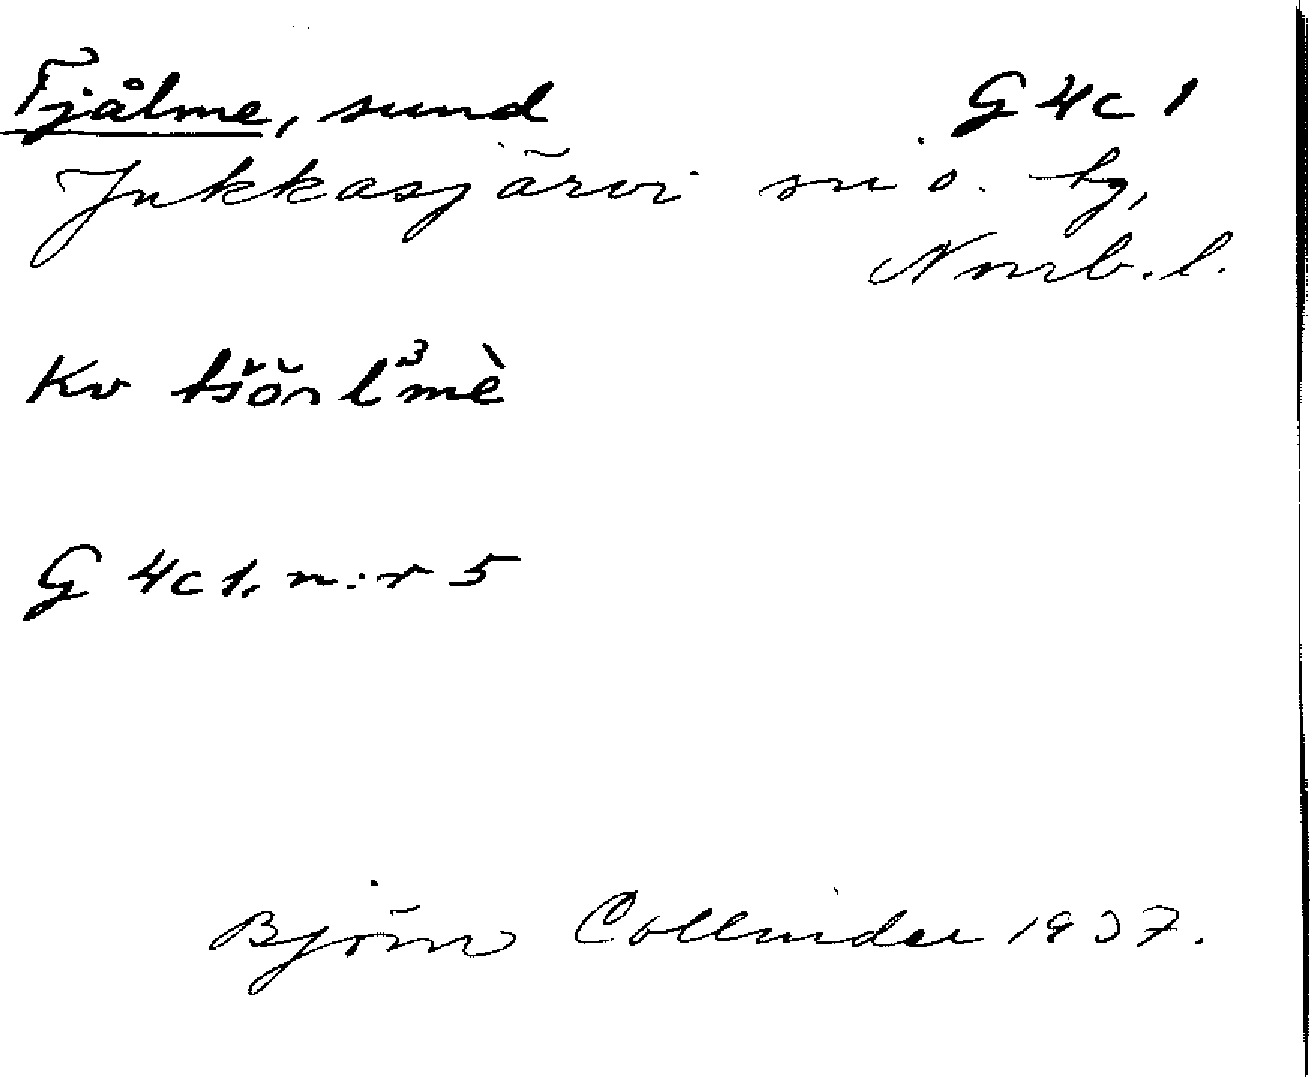 Tjålme, sund G 4c 1
Jukkasjärvi sn o. tg,
Norrb. l.
Kv
G 4c1, n:r 5
Björn Collinder 1937.